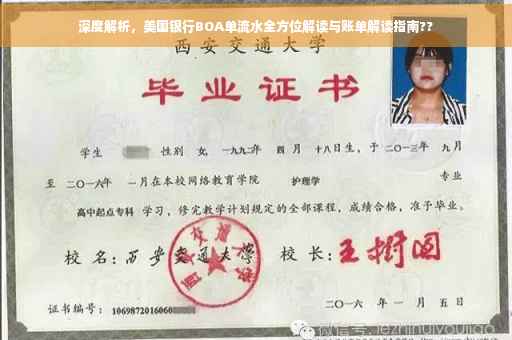 深度解析，美国银行BOA单流水全方位解读与账单解读指南??
西安交通大学
毕业证书
学生 性别 女, 一九九二年 四月 十八日生，于二〇一三年 九月
至 二〇一六年 一月在本校网络教育学院 护理学 专业
高中起点专科 学习，修完教学计划规定的全部课程，成绩合格，准予毕业。
校 名：西安交通大学 校 长：王树国
西安交通大学
证书编号： 1069872016060
二〇一六 年 一 月 五 日
微信号: jezhinuiyoujiao